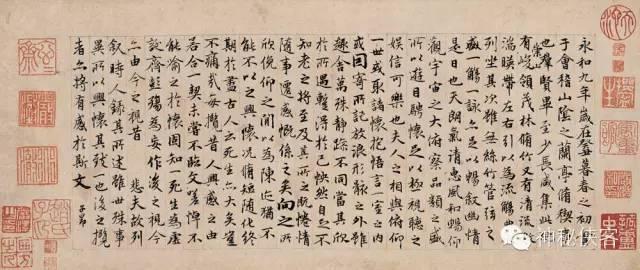 永和九年歲在癸丑暮春之初會
于會稽山陰之蘭亭脩稧事
也羣賢畢至少長咸集此地
有崇山峻領茂林脩竹又有清流激
湍暎帶左右引以為流觴曲水
列坐其次雖無絲竹管弦之
盛一觴一詠亦足以暢敘幽情
是日也天朗氣清惠風和暢仰
觀宇宙之大俯察品類之盛
所以遊目騁懷足以極視聽之
娛信可樂也夫人之相與俯仰
一世或取諸懷抱悟言一室之內
或因寄所託放浪形骸之外雖
趣舍萬殊靜躁不同當其欣
於所遇輒得於己怏然自足不
知老之將至及其所之既惓情
隨事遷感慨係之矣向之所
欣俛仰之閒以為陳迹猶不
能不以之興懷況脩短隨化終
期於盡古人云死生亦大矣豈
不痛哉每攬昔人興感之由
若合一契未嘗不臨文嗟悼不
能喻之於懷固知一死生為虛
誕齊彭殤為妄作後之視今
亦由今之視昔悲夫故列
敘時人錄其所述雖世殊事
異所以興懷其致一也後之攬
者亦將有感於斯文
子昂
神秘侠客